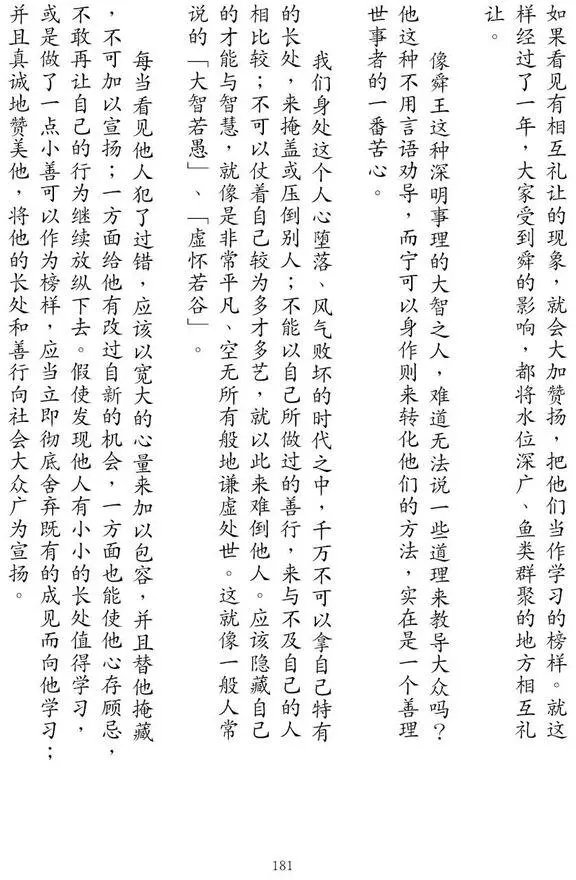 如果看见有相互礼让的现象，就会大加赞扬，把他们当作学习的榜样。就这
样经过了一年，大家受到舜的影响，都将水位深广、鱼类群聚的地方相互礼
让。
像舜王这种深明事理的大智之人，难道无法说一些道理来教导大众吗？
他这种不用言语劝导，而宁可以身作则来转化他们的方法，实在是一个善理
世事者的一番苦心。
我们身处这个人心堕落、风气败坏的时代之中，千万不可以拿自己特有
的长处，来掩盖或压倒别人；不能以自己所做过的善行，来与不及自己的人
相比较；不可以仗着自己较为多才多艺，就以此来难倒他人。应该隐藏自己
的才能与智慧，就像是非常平凡、空无所有般地谦虚处世。这就像一般人常
说的「大智若愚」、「虚怀若谷」。
每当看见他人犯了过错，应该以宽大的心量来加以包容，并且替他掩藏
，不可加以宣扬；一方面给他有改过自新的机会，一方面也能使他心存顾忌，
不敢再让自己的行为继续放纵下去。假使发现他人有小小的长处值得学习，
或是做了一点小善可以作为榜样，应当立即彻底舍弃既有的成见而向他学习；
并且真诚地赞美他，将他的长处和善行向社会大众广为宣扬。
181